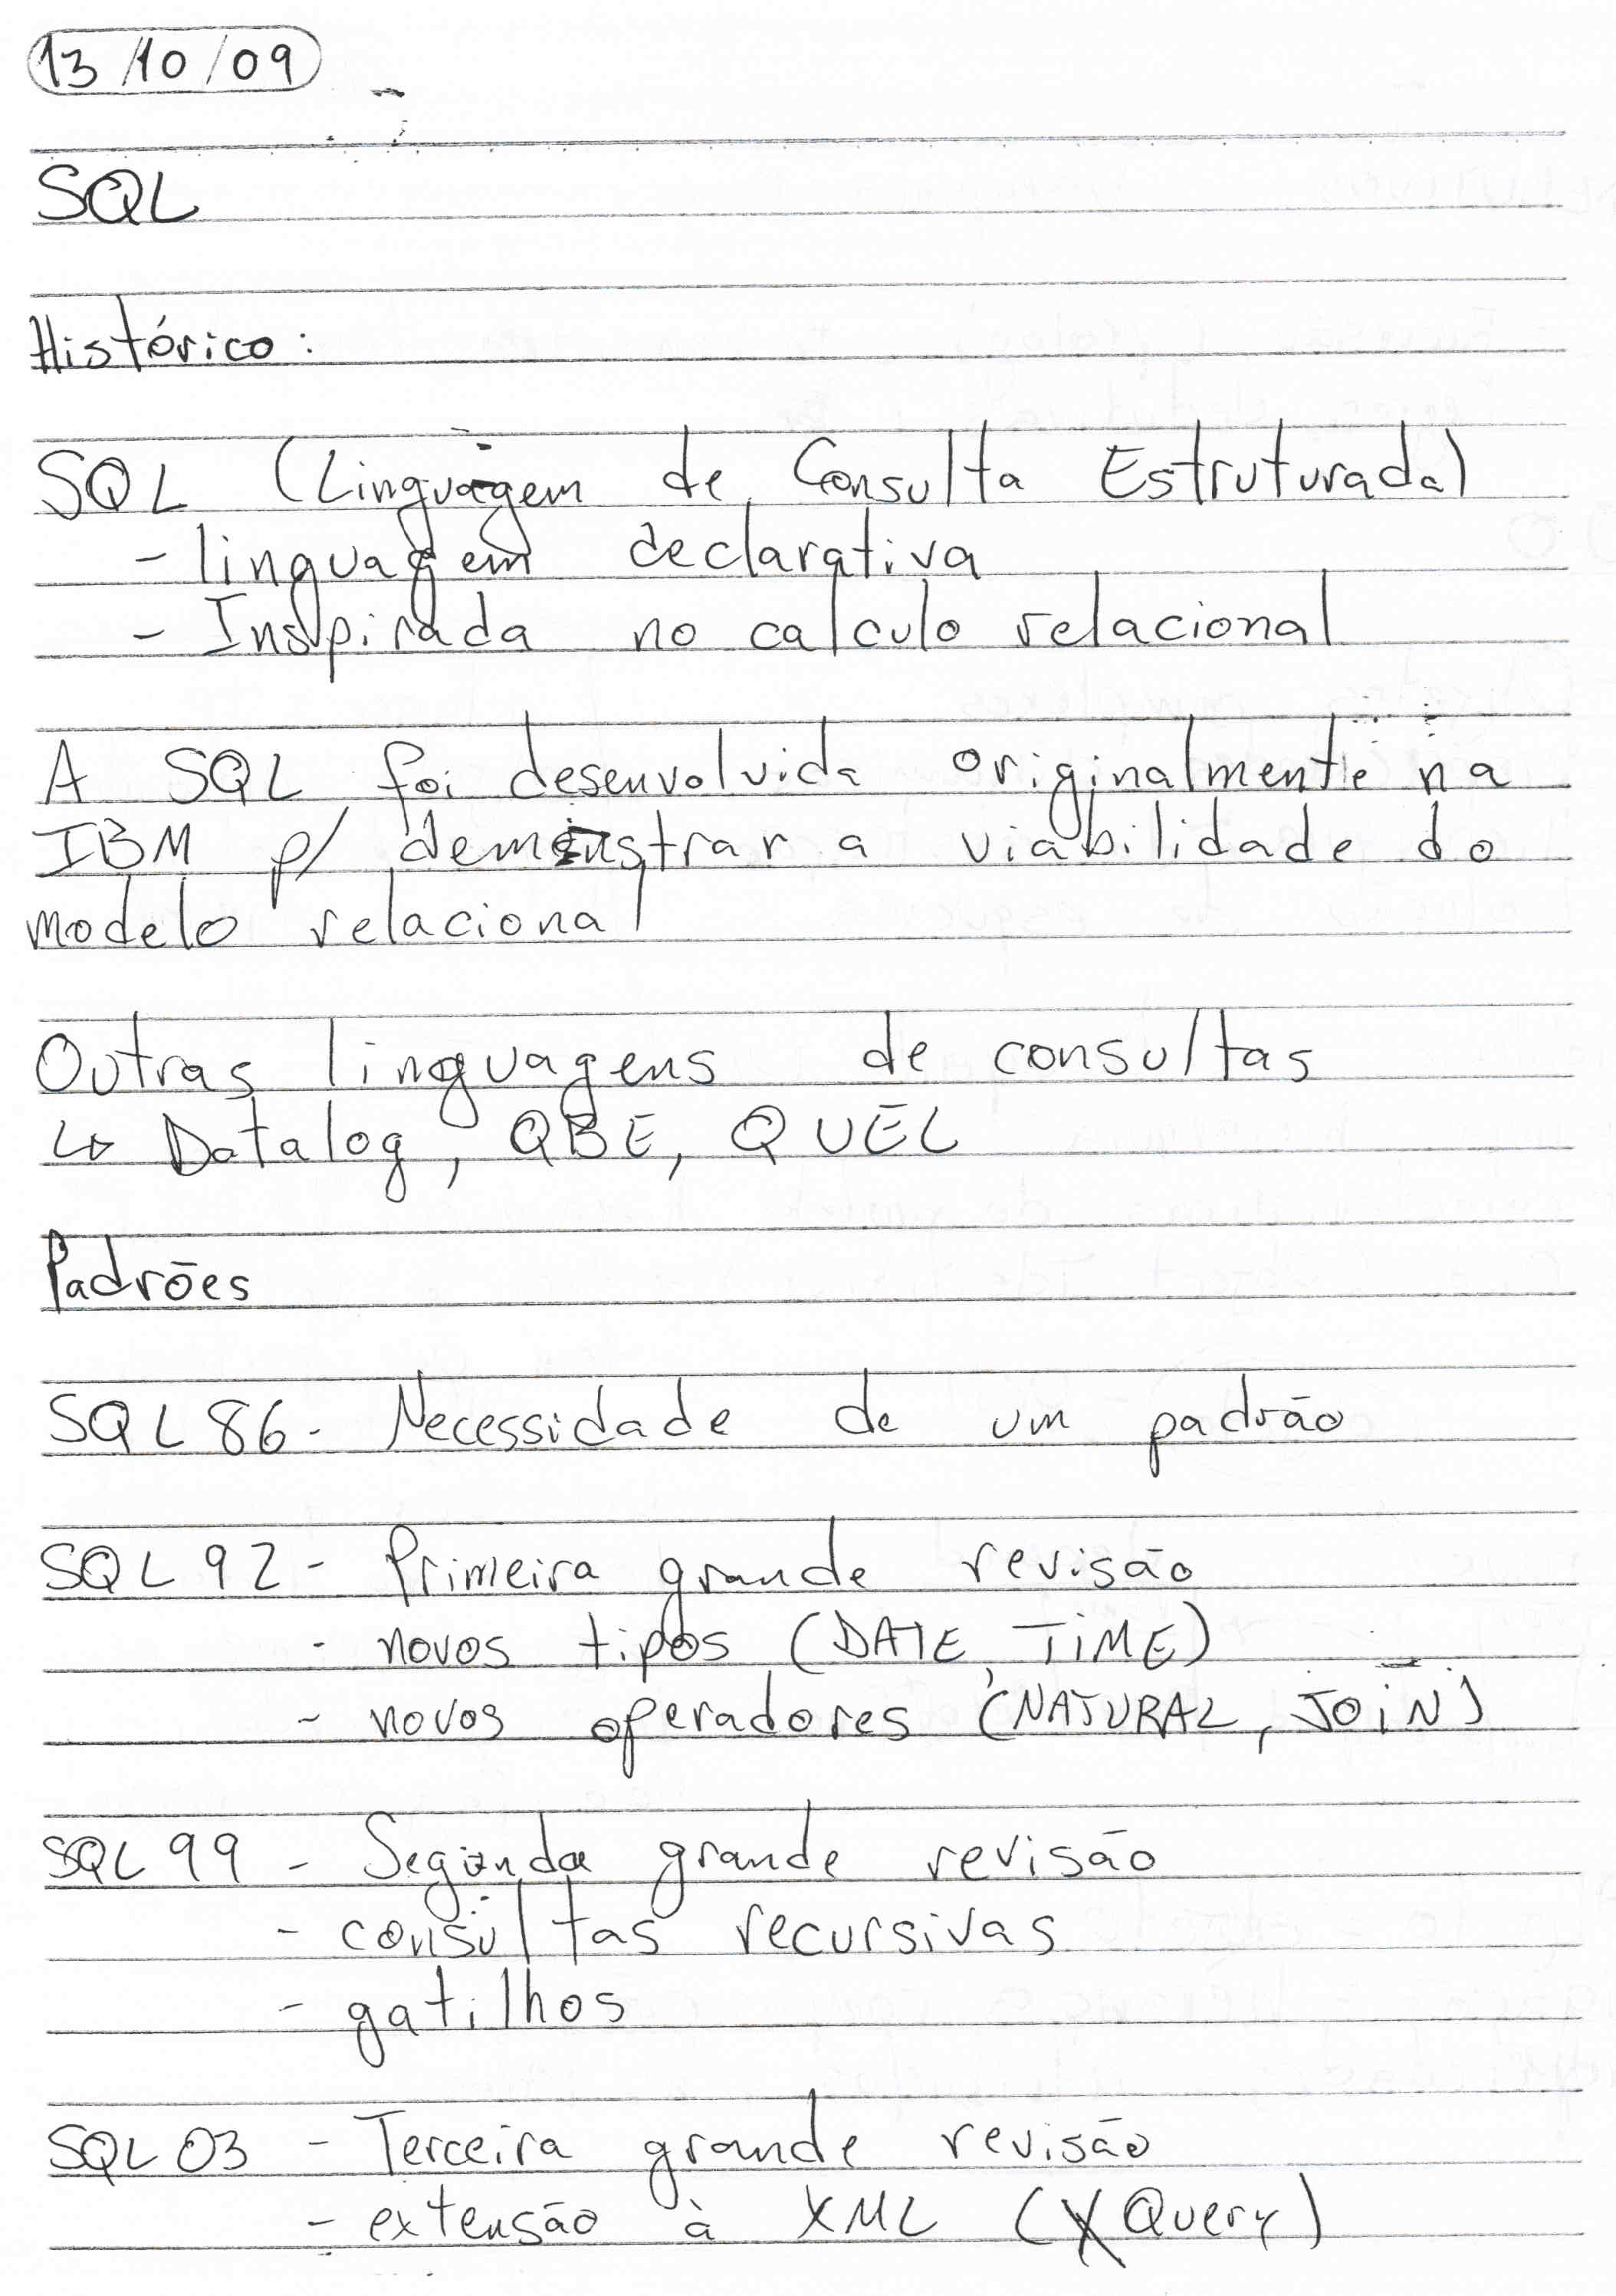 13/10/09
SQL
Histórico:
SQL (Linguagem de Consulta Estruturada)
- linguagem declarativa
- Inspirada no calculo relacional
A SQL foi desenvolvida originalmente na
IBM p/ demonstrar a viabilidade do
modelo relacional
Outras linguagens de consultas
↳ Datalog, QBE, QUEL
Padrões
SQL 86 - Necessidade de um padrão
SQL 92 - Primeira grande revisão
- novos tipos (DATE, TiME)
- novos operadores (NATURAL, JOiN)
SQL 99 - Segunda grande revisão
- consultas recursivas
- gatilhos
SQL 03 - Terceira grande revisão
- extensão à XML (XQuery)